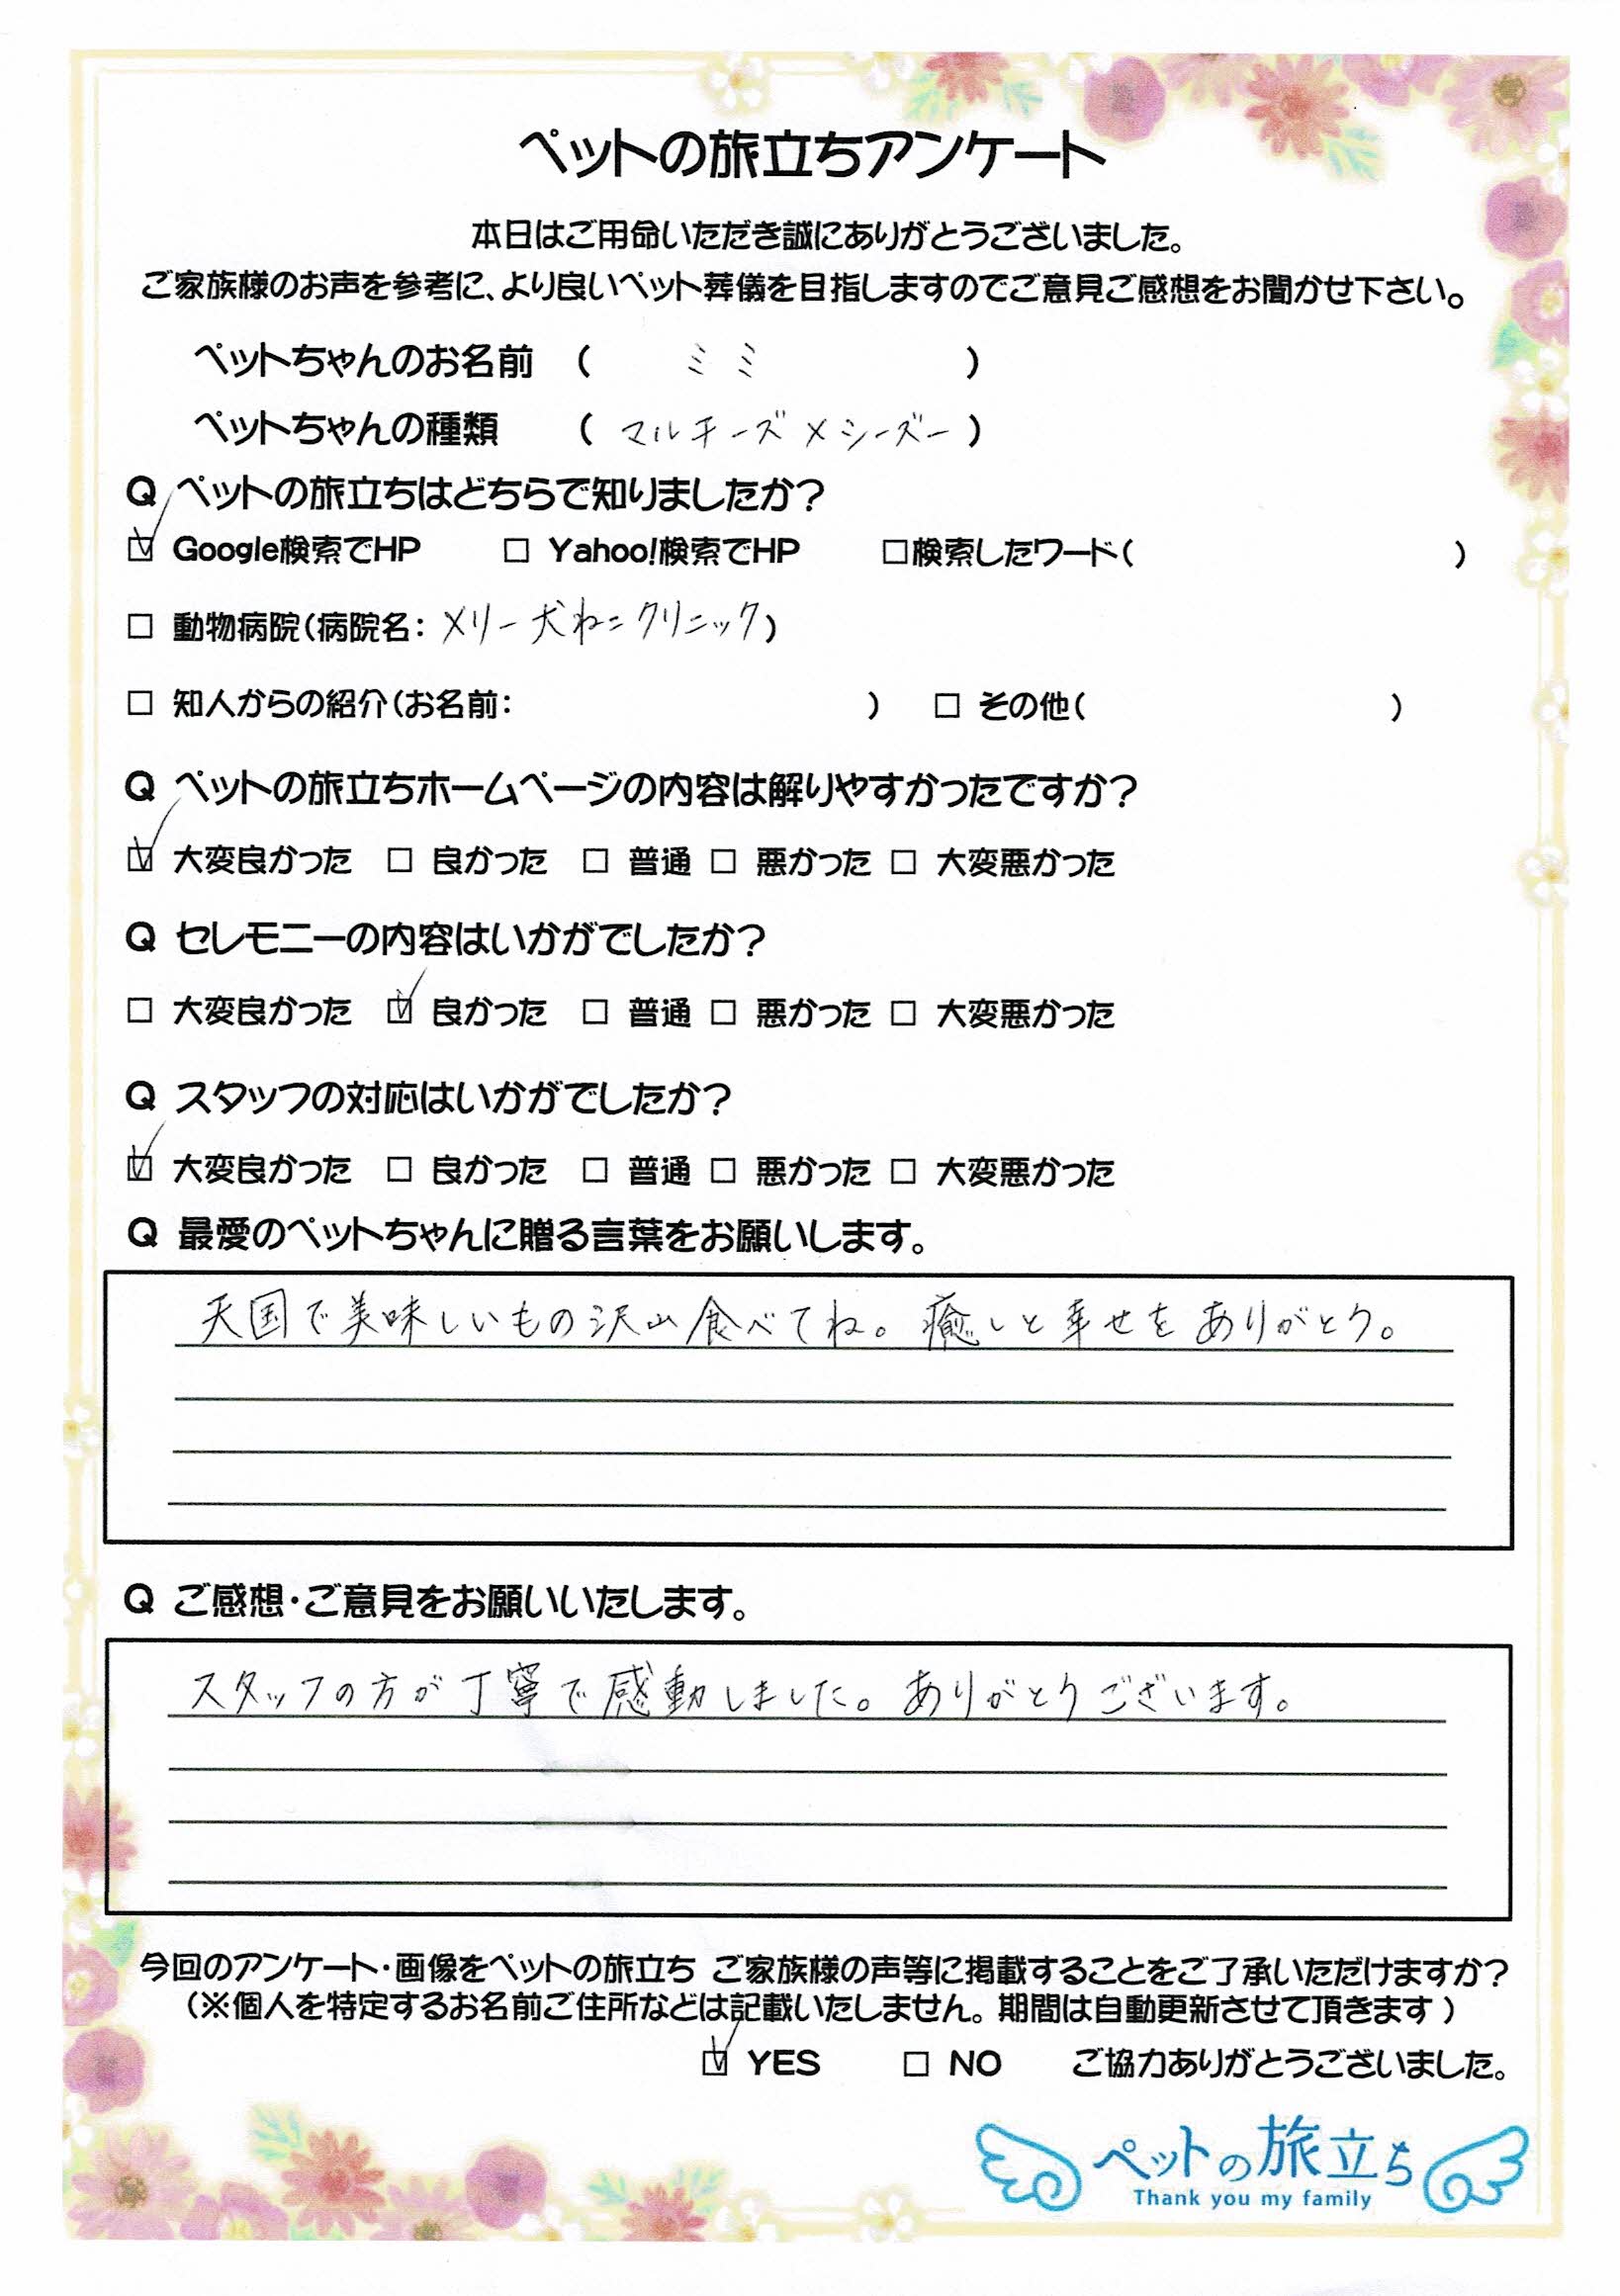 ペットの旅立ちアンケート
本日はご用命いただき誠にありがとうございました。
ご家族様のお声を参考に、より良いペット葬儀を目指しますのでご意見ご感想をお聞かせ下さい。
ペットちゃんのお名前 ( ミミ )
ペットちゃんの種類 ( マルチーズ×シーズー )
Q ペットの旅立ちはどちらで知りましたか?
☑ Google検索でHP □ Yahoo!検索でHP □検索したワード( )
□ 動物病院(病院名: メリー犬ねこクリニック)
□ 知人からの紹介(お名前: ) □ その他( )
Q ペットの旅立ちホームページの内容は解りやすかったですか?
☑ 大変良かった □ 良かった □ 普通 □ 悪かった □ 大変悪かった
Q セレモニーの内容はいかがでしたか?
□ 大変良かった ☑ 良かった □ 普通 □ 悪かった □ 大変悪かった
Q スタッフの対応はいかがでしたか?
☑ 大変良かった □ 良かった □ 普通 □ 悪かった □ 大変悪かった
Q 最愛のペットちゃんに贈る言葉をお願いします。
天国で美味しいもの沢山食べてね。癒しと幸せをありがとう。
Q ご感想・ご意見をお願いいたします。
スタッフの方が丁寧で感動しました。ありがとうございます。
今回のアンケート・画像をペットの旅立ち ご家族様の声等に掲載することをご了承いただけますか?
(※個人を特定するお名前ご住所などは記載いたしません。期間は自動更新させて頂きます)
☑ YES □ NO ご協力ありがとうございました。
ペットの旅立ち
Thank you my family